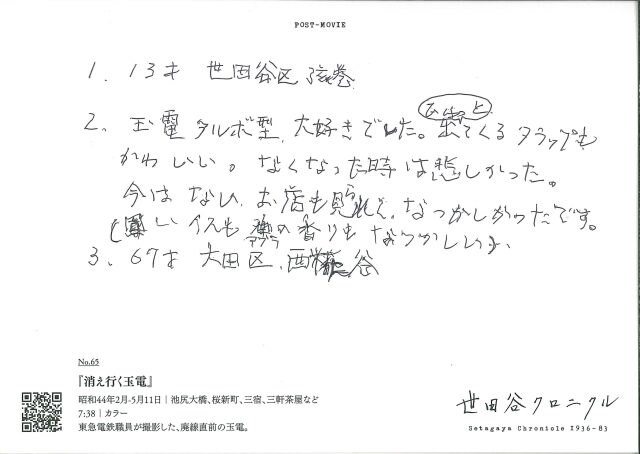 POST-MOVIE
1. 13才 世田谷区 弦巻
2. 玉電 タルボ型、大好きでした。出てくるタラップも
かわいい。なくなった時は悲しかった。
今はない お店も見られて、なつかしかったです。
いイスも の香りも なつかしい
3. 67才 大田区、西糀谷
No.65
『消え行く玉電』
昭和44年2月-5月11日|池尻大橋、桜新町、三宿、三軒茶屋など
7:38|カラー
東急電鉄職員が撮影した、廃線直前の玉電。
世田谷クロニクル
Setagaya Chronicle 1936-83